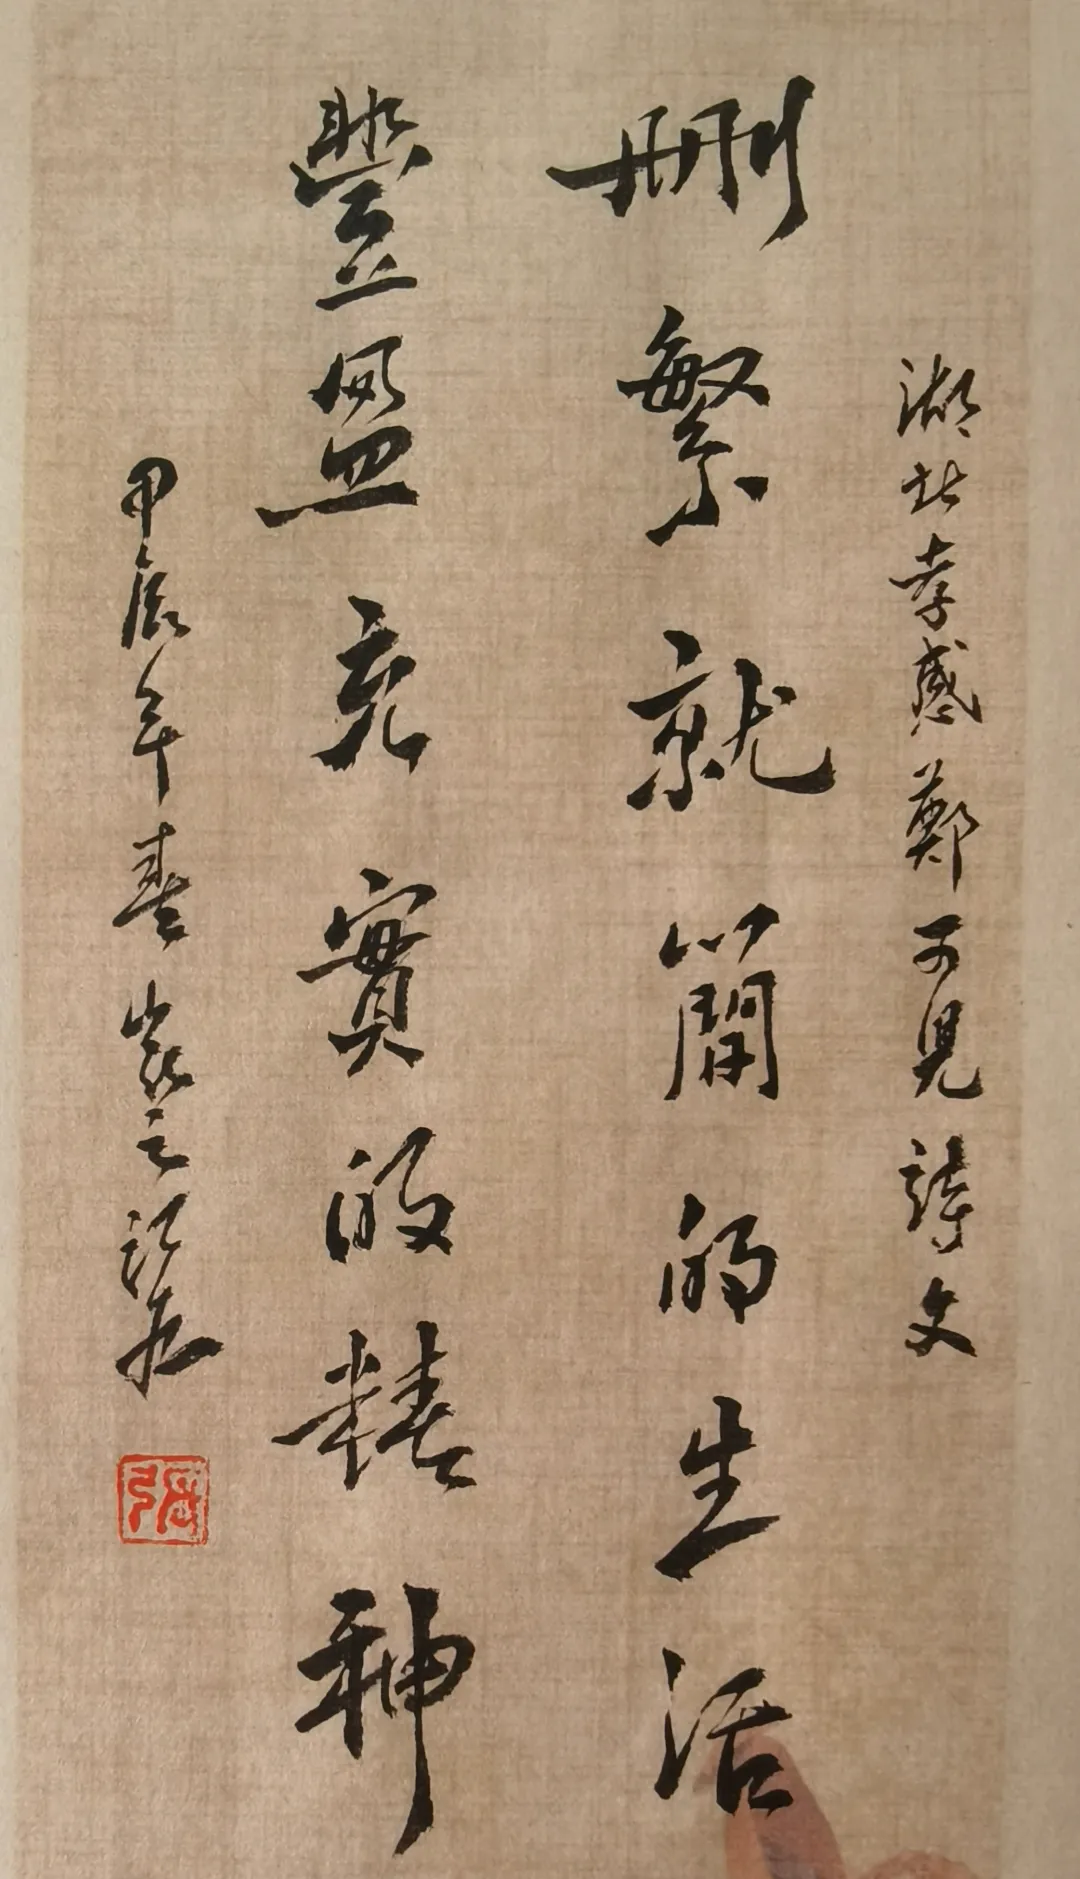 湖北孝感鄭可見詩文
刪繁就簡的生活
豐盈充實的精神
甲辰年春
張